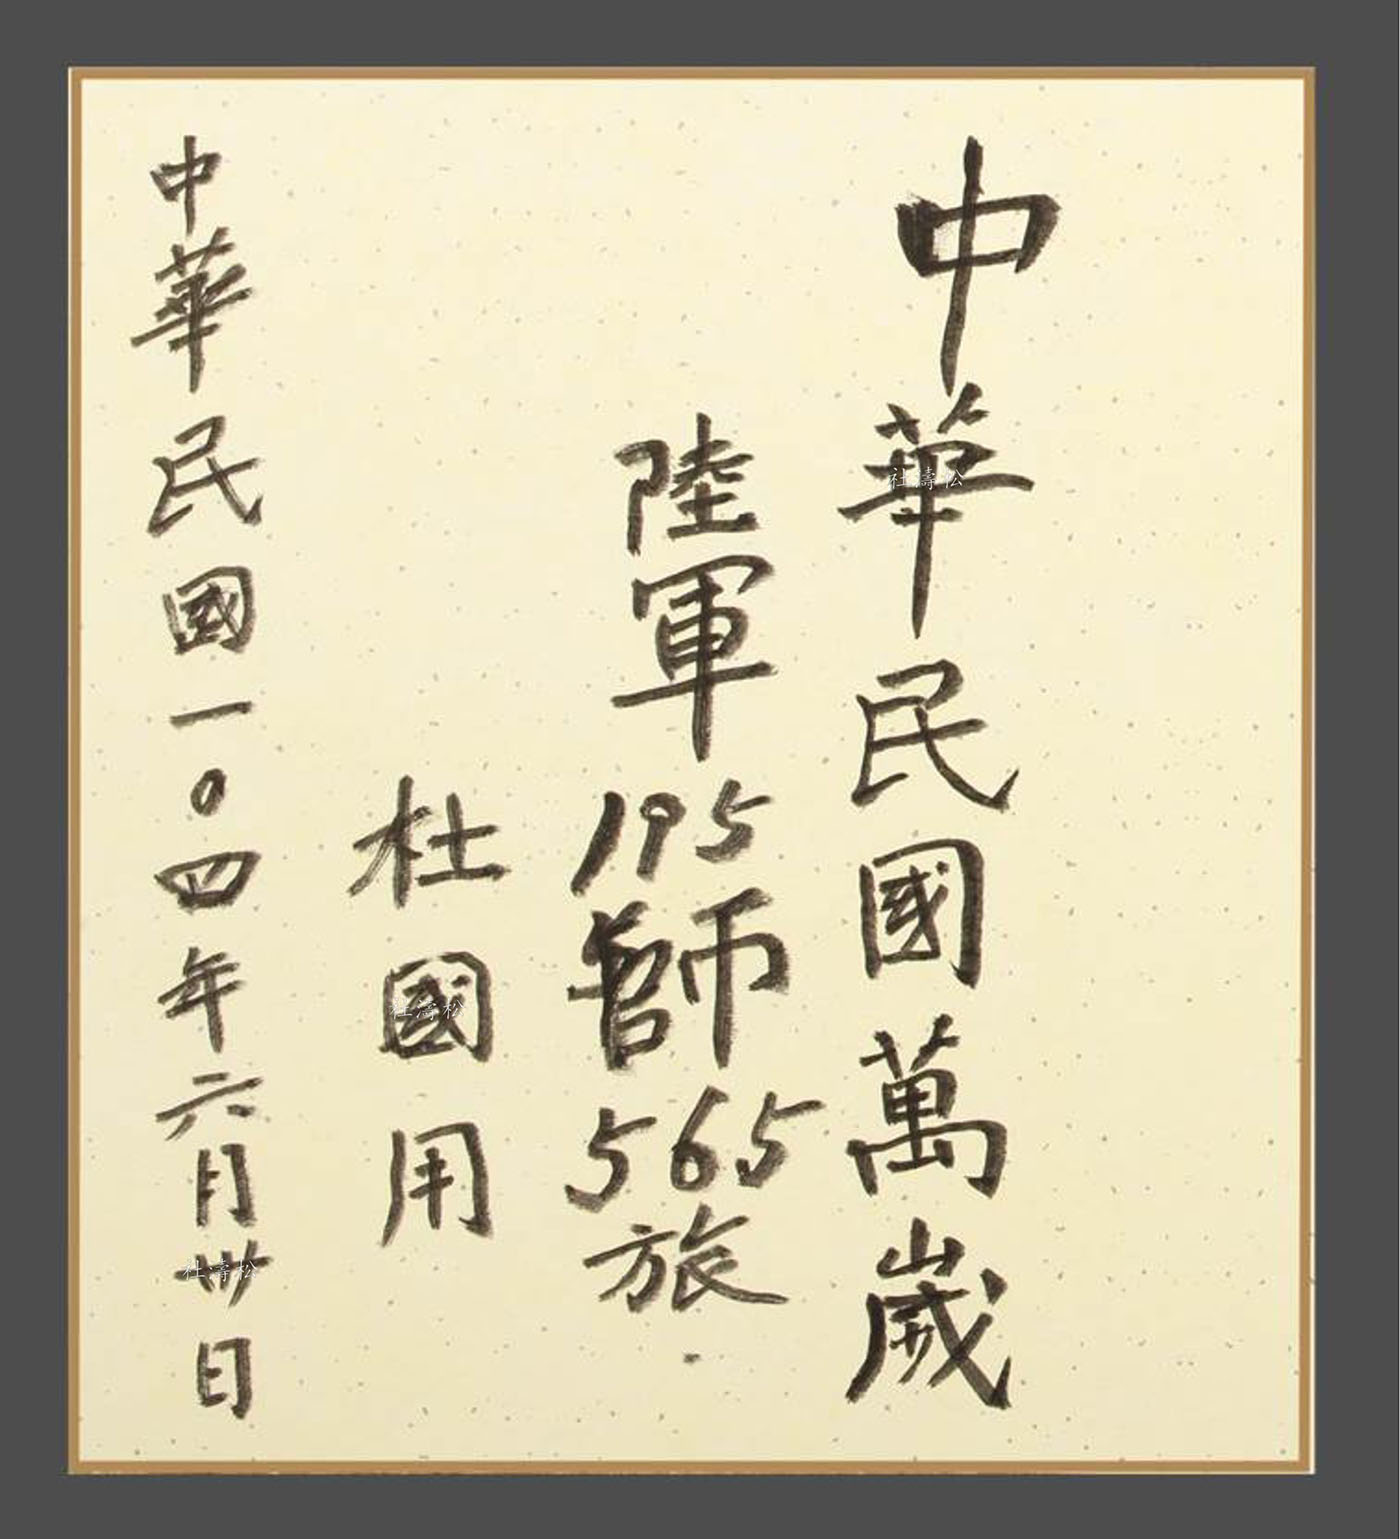 中華民國萬歲
陸軍
195
師
565
旅
杜國用
中華民國一〇四年六月卅日
杜濤松
杜濤松
杜濤松